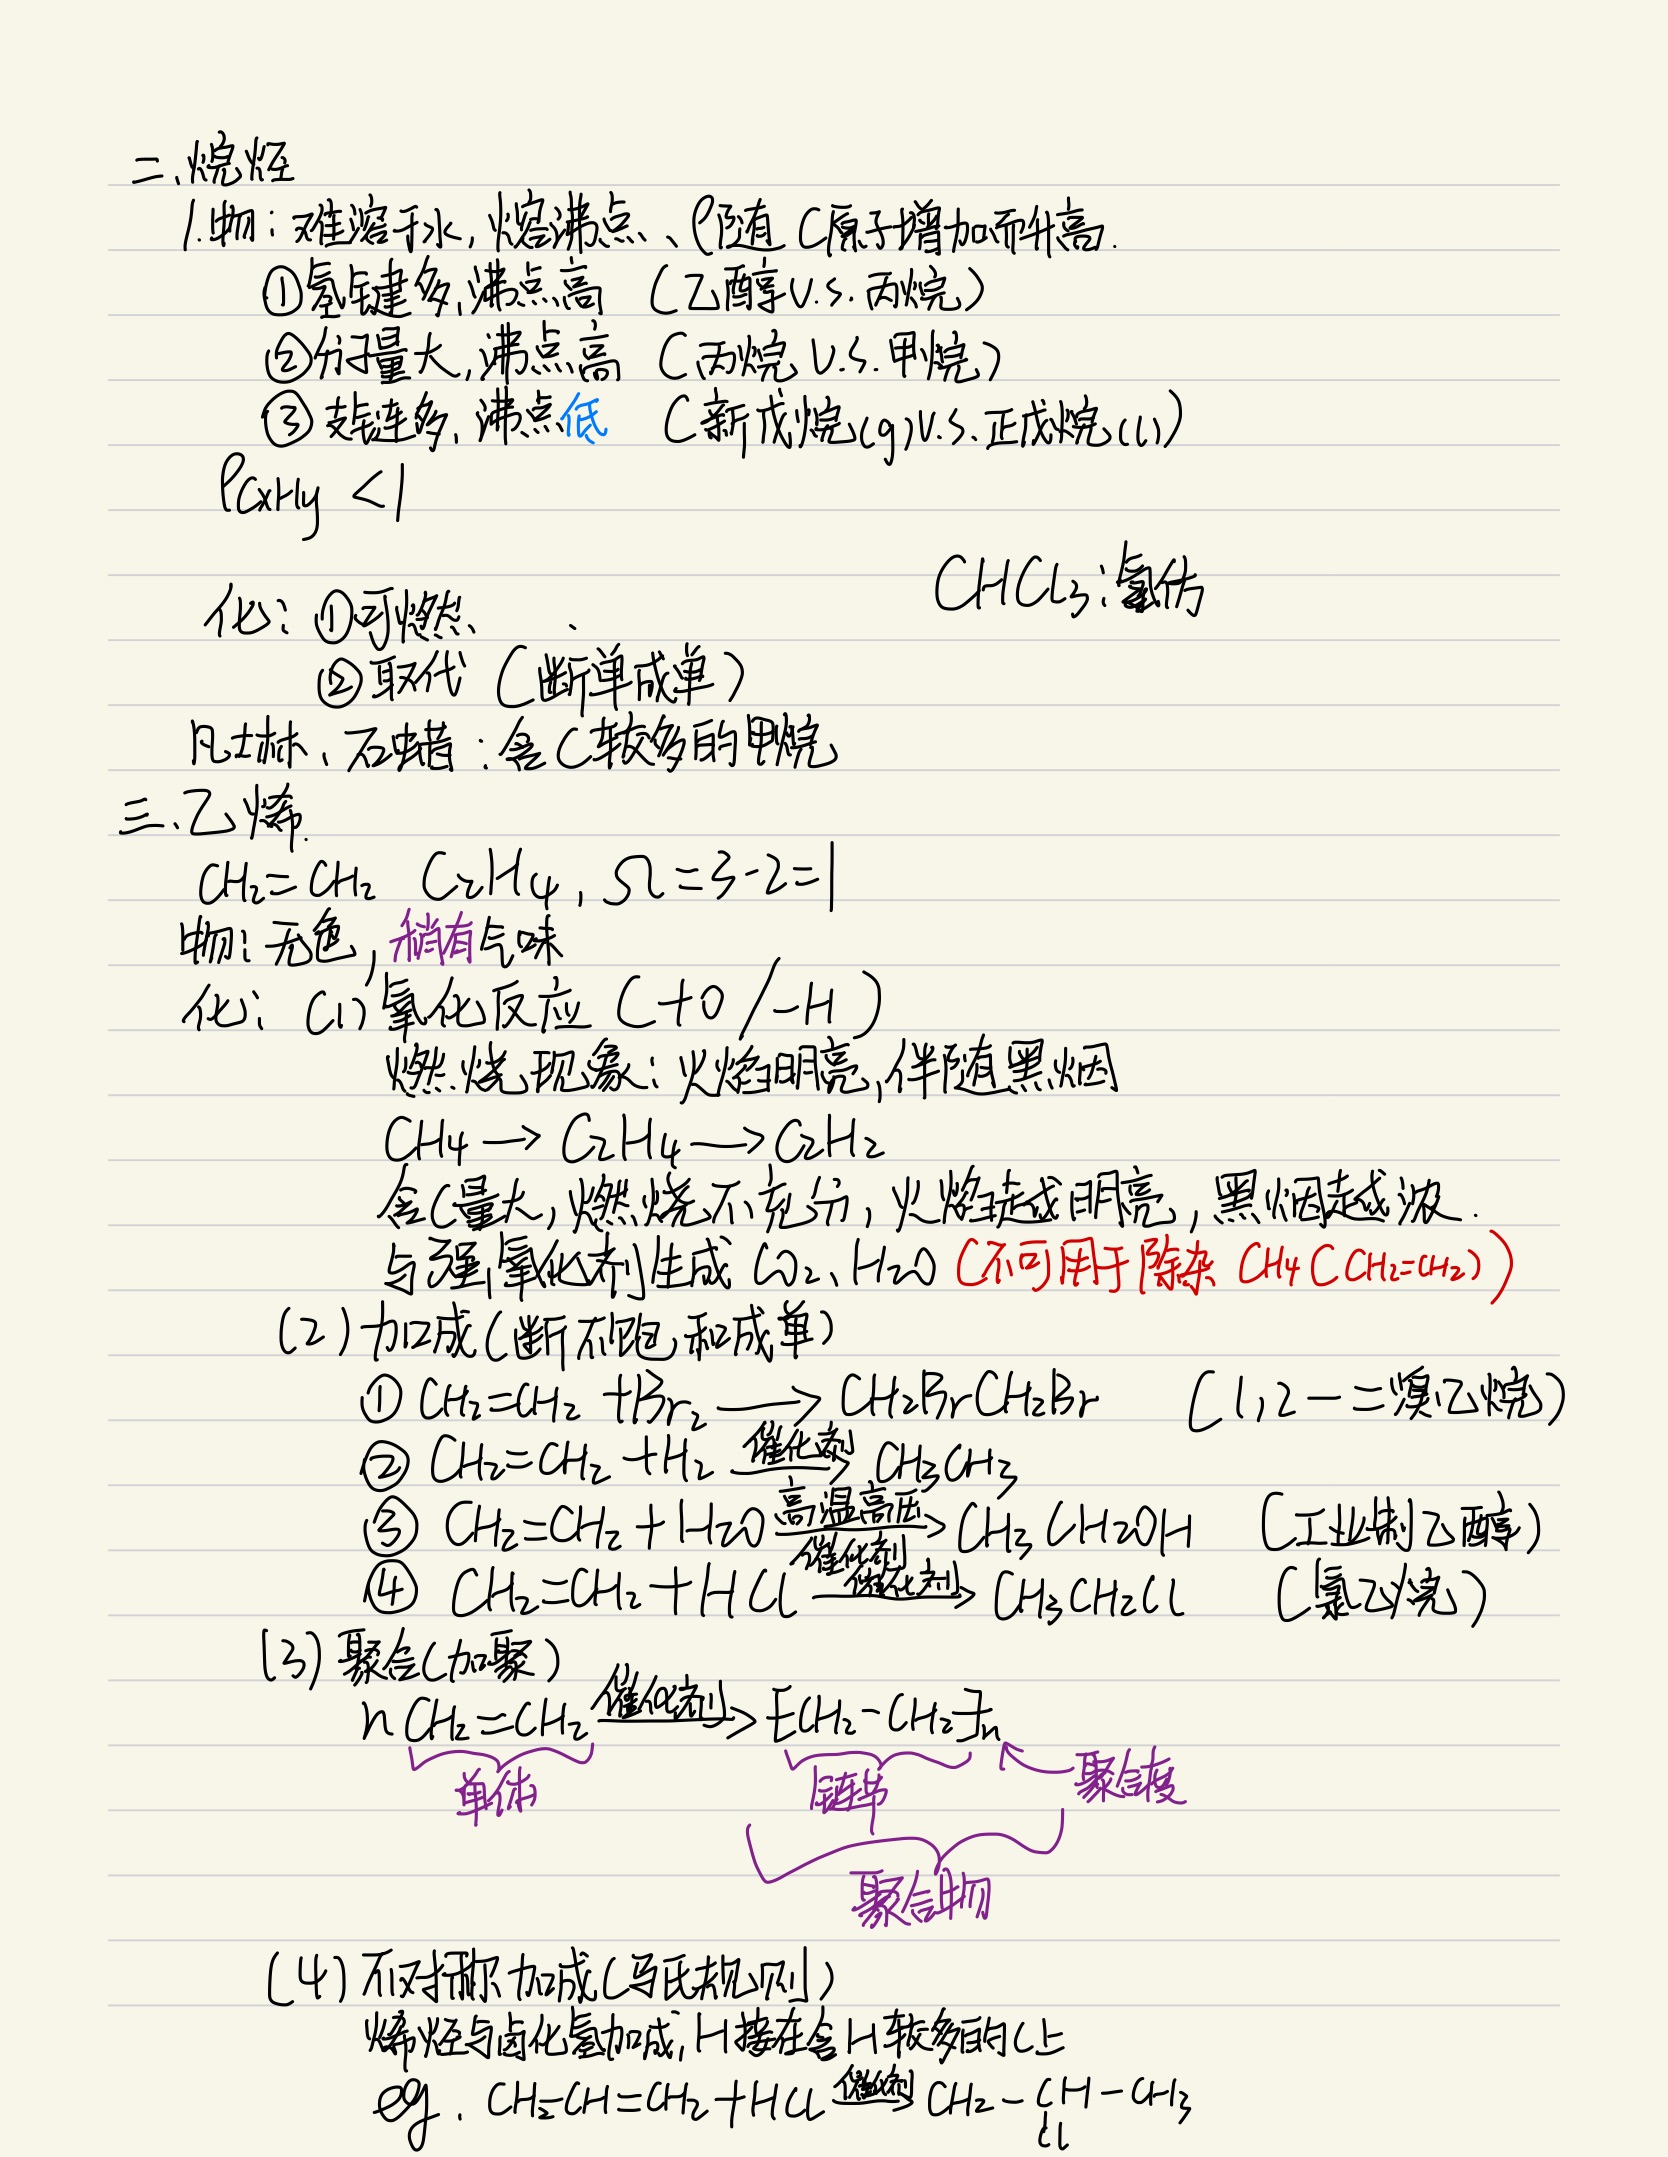 二、烷烃
1.物：难溶于水，熔沸点、ρ随C原子增加而升高.
①氢键多，沸点高 （乙醇V.S.丙烷）
②分子量大，沸点高 （丙烷V.S.甲烷）
③支链多，沸点低 （新戊烷(g)V.S.正戊烷(l)）
ρCxHy <1
CHCl3：氯仿
化：①可燃、
②取代（断单成单）
凡士林、石蜡：含C较多的甲烷
三.乙烯.
CH2=CH2 C2H4，Ω=3-2=1
物：无色，稍有气味
化：(1)氧化反应（+O/-H）
燃烧现象：火焰明亮，伴随黑烟
CH4→C2H4→C2H2
含C量大，燃烧不充分，火焰越明亮，黑烟越浓.
与强氧化剂生成CO2、H2O（不可用于除杂CH4(CH2=CH2)）
(2)加成（断不饱和成单）
①CH2=CH2+Br2→CH2BrCH2Br （1,2-二溴乙烷）
②CH2=CH2+H2 催化剂→ CH3CH3
③CH2=CH2+H2O 高温高压 催化剂→ CH3CH2OH （工业制乙醇）
④CH2=CH2+HCl 催化剂→ CH3CH2Cl （氯乙烷）
(3)聚合（加聚）
nCH2=CH2 催化剂→ [CH2-CH2]n
单体 链节 聚合度
聚合物
(4)不对称加成（马氏规则）
烯烃与卤化氢加成，H接在含H较多的C上
eg. CH2=CH=CH2+HCl 催化剂→ CH2-CH-CH3
Cl